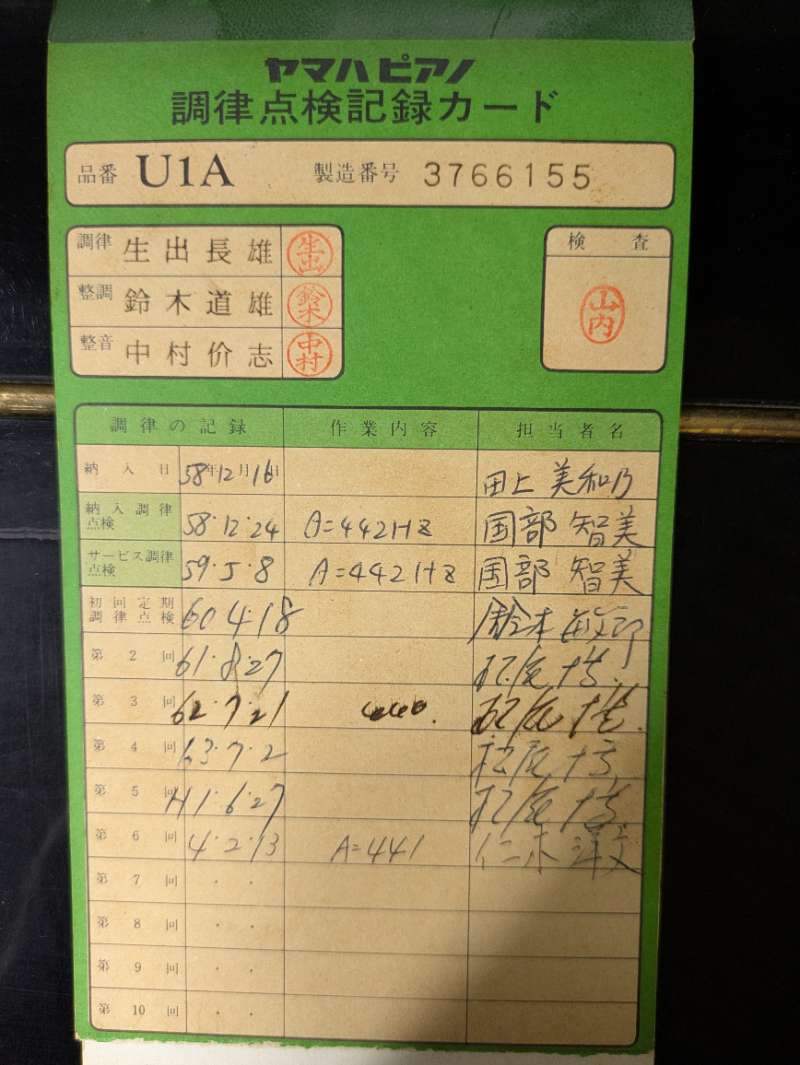 ヤマハピアノ
調律点検記録カード
品番 U1A 製造番号 3766155
調律 生出長雄 生出
整調 鈴木道雄 鈴木
整音 中村价志 中村
検査
山内
調律の記録 作業内容 担当者名
納入日 58年12月16日 田上 美和乃
納入調律点検 58・12・24 A=442Hz 国部 智美
サービス調律点検 59・5・8 A=442Hz 国部 智美
初回定期調律点検 60 4・18 鈴木
第2回 61・8・27 松尾
第3回 62・7・21 松尾
第4回 63・7・2 松尾
第5回 H1・6・27 松尾
第6回 4・2・13 A=441 仁木
第7回 ・ ・
第8回 ・ ・
第9回 ・ ・
第10回 ・ ・